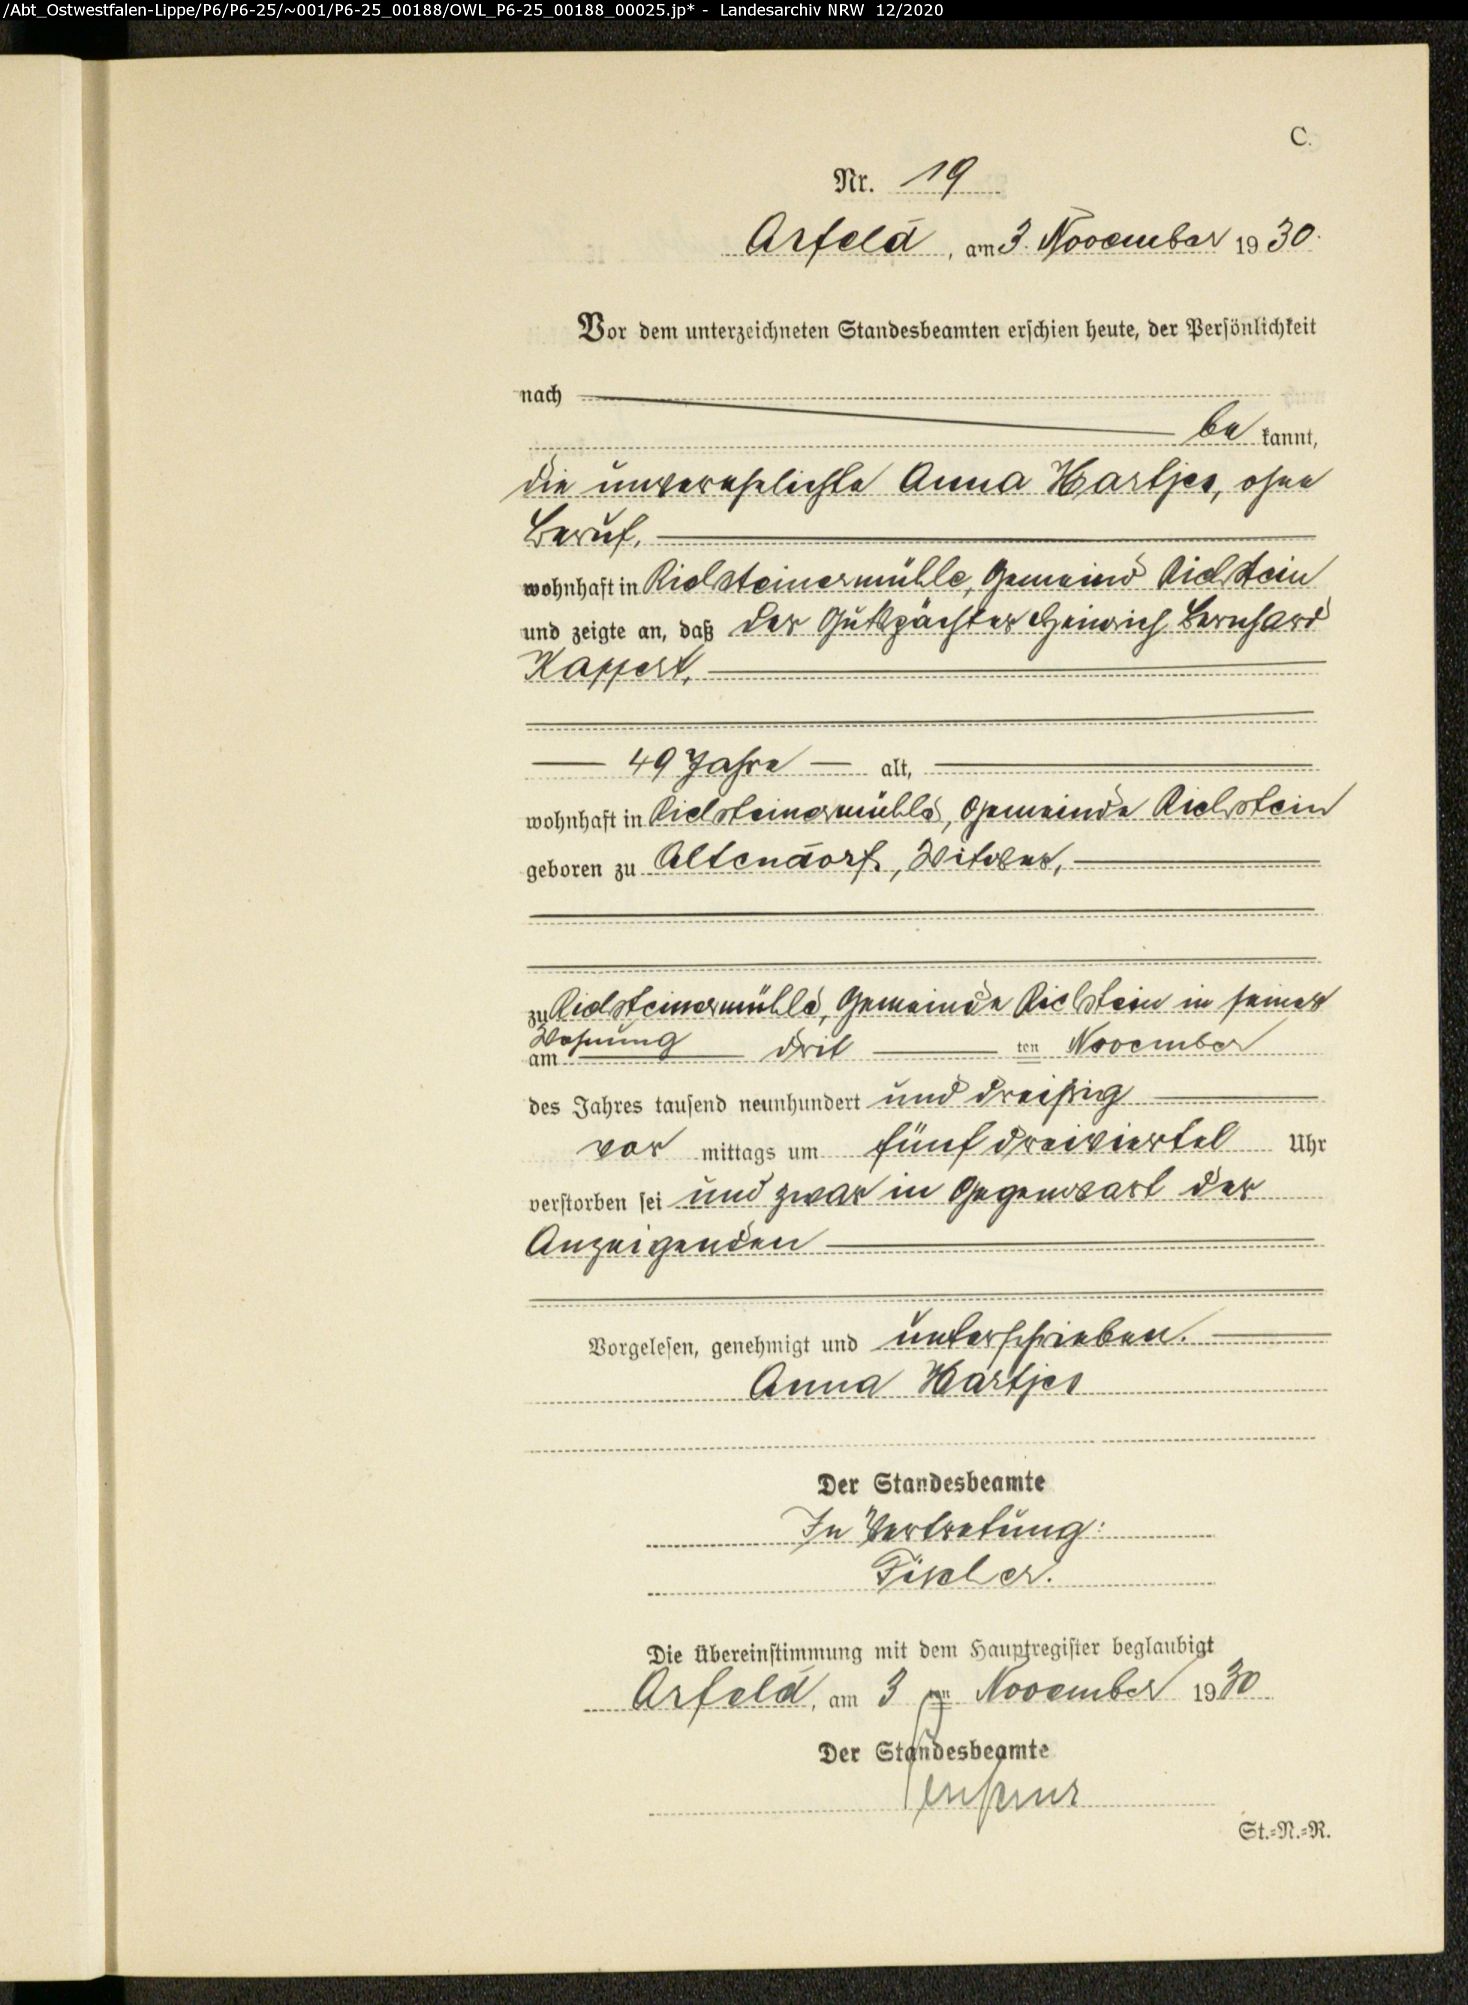 /Abt_Ostwestfalen-Lippe/P6/P6-25/~001/P6-25_00188/OWL_P6-25_00188_00025.jp* - Landesarchiv NRW 12/2020
C.
Nr. 19
Arfeld, am 3. November 1930.
Vor dem unterzeichneten Standesbeamten erschien heute, der Persönlichkeit
nach
be kannt,
die unverehelichte Anna Hartjes, ohne
Beruf,
wohnhaft in Richsteinermühle, Gemeinde Richstein
und zeigte an, daß der Gutspächter Heinrich Bernhard
Kappert,
49 Jahre alt,
wohnhaft in Richsteinermühle, Gemeinde Richstein
geboren zu Altendorf, Witwer,
zu Richsteinermühle, Gemeinde Richstein in seiner
Wohnung
am drit ten November
des Jahres tausend neunhundert und dreißig
vor mittags um fünf dreiviertel Uhr
verstorben sei und zwar in Gegenwart der
Anzeigenden
Vorgelesen, genehmigt und unterschrieben.
Anna Hartjes
Der Standesbeamte
In Vertretung:
Fischer.
Die Übereinstimmung mit dem Hauptregister beglaubigt
Arfeld, am 3 ten November 1930
Der Standesbeamte
St.=N.=R.